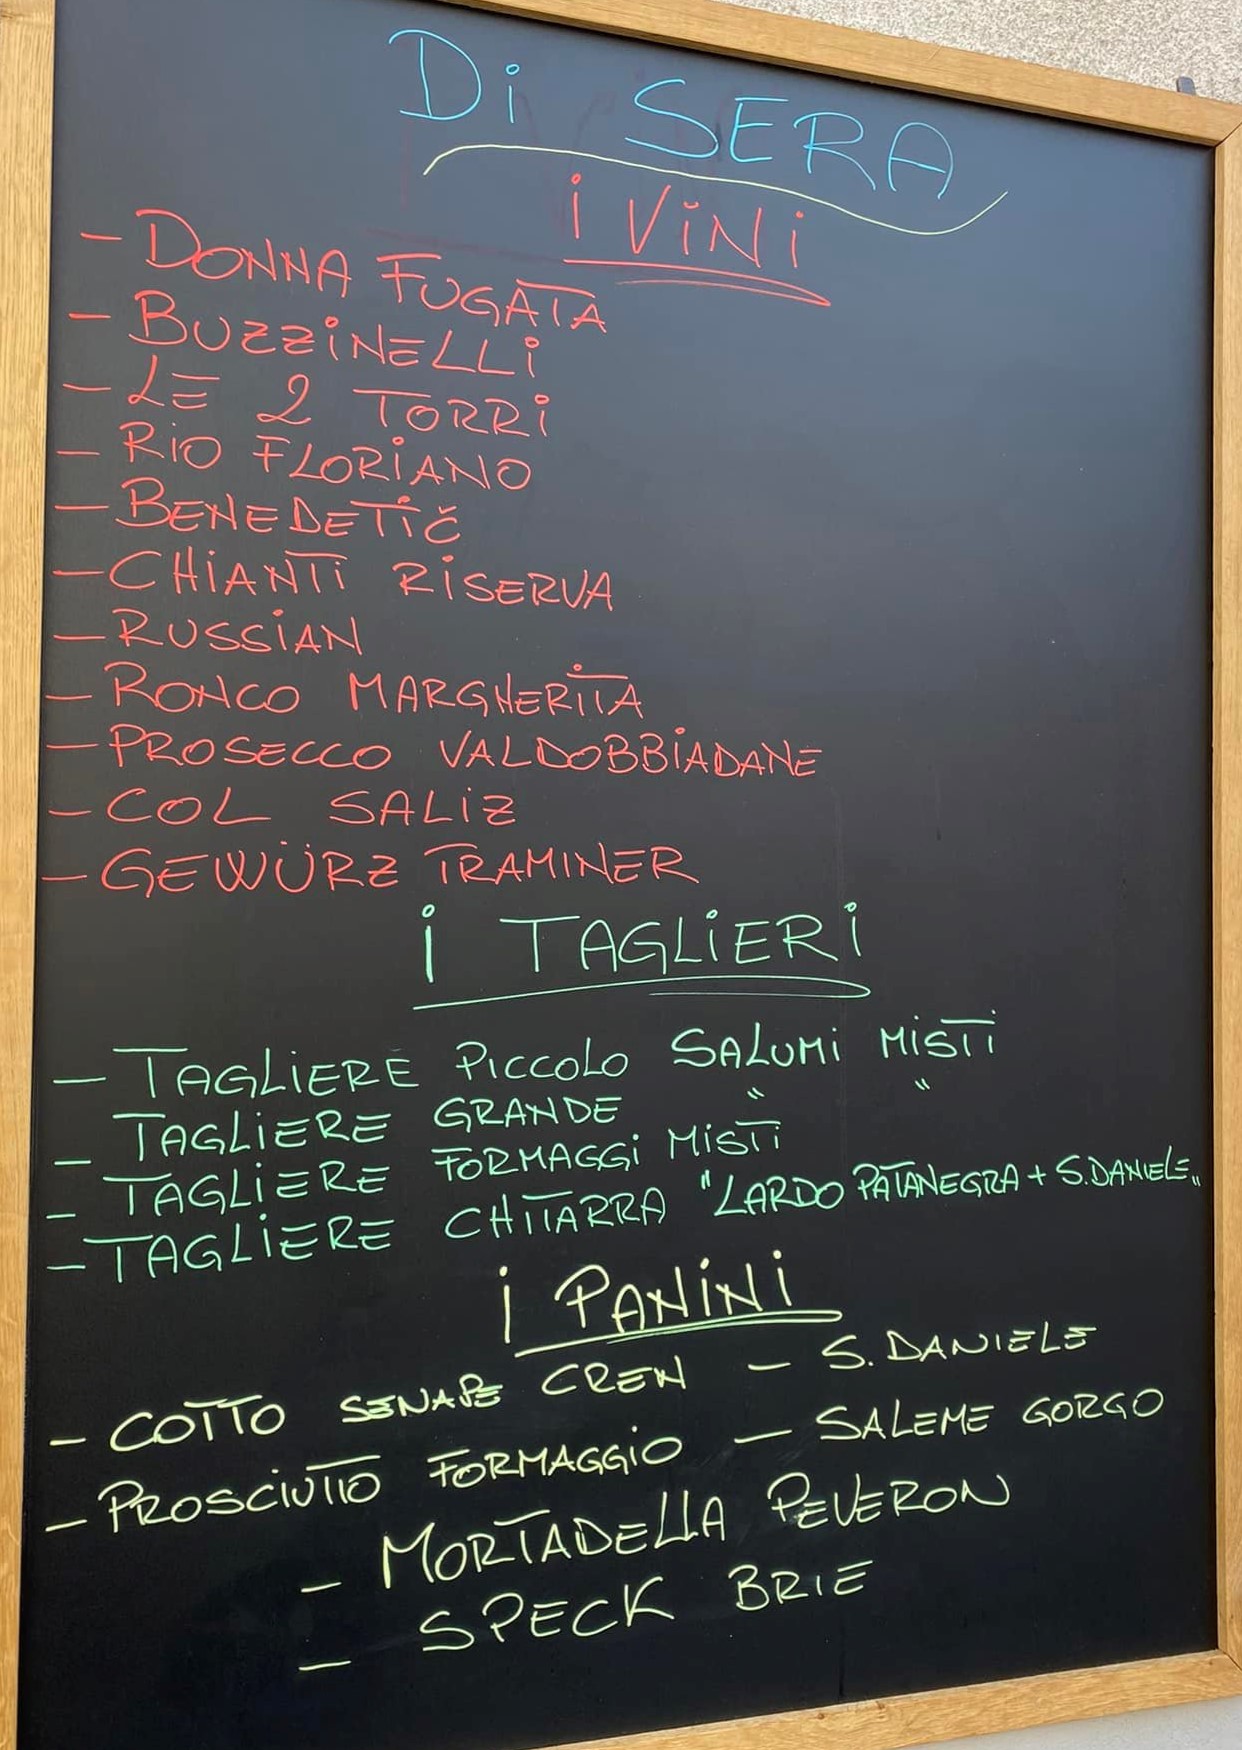 Di SERA
i ViNi
- DONNA FUGATA
- BUZZiNELLi
- LE 2 TORRi
- RiO FLORiANO
- BENEDETiČ
- CHiANTi RiSERVA
- RUSSiAN
- RONCO MARGHERiTA
- PROSECCO VALDOBBiADANE
- COL SALiZ
- GEWÜRZ TRAMINER
i TAGLiERi
- TAGLiERE PiCCOLO SALUMi MiSTi
- TAGLiERE GRANDE " "
- TAGLiERE FORMAGGi MiSTi
- TAGLiERE CHITARRA "LARDO PATANEGRA + S.DANiELE"
i PANiNi
- COTTO SENAPE CREN - S. DANIELE
- PROSCiUTTO FORMAGGiO - SALEME GORGO
- MORTADELLA PEVERON
- SPECK BRIE